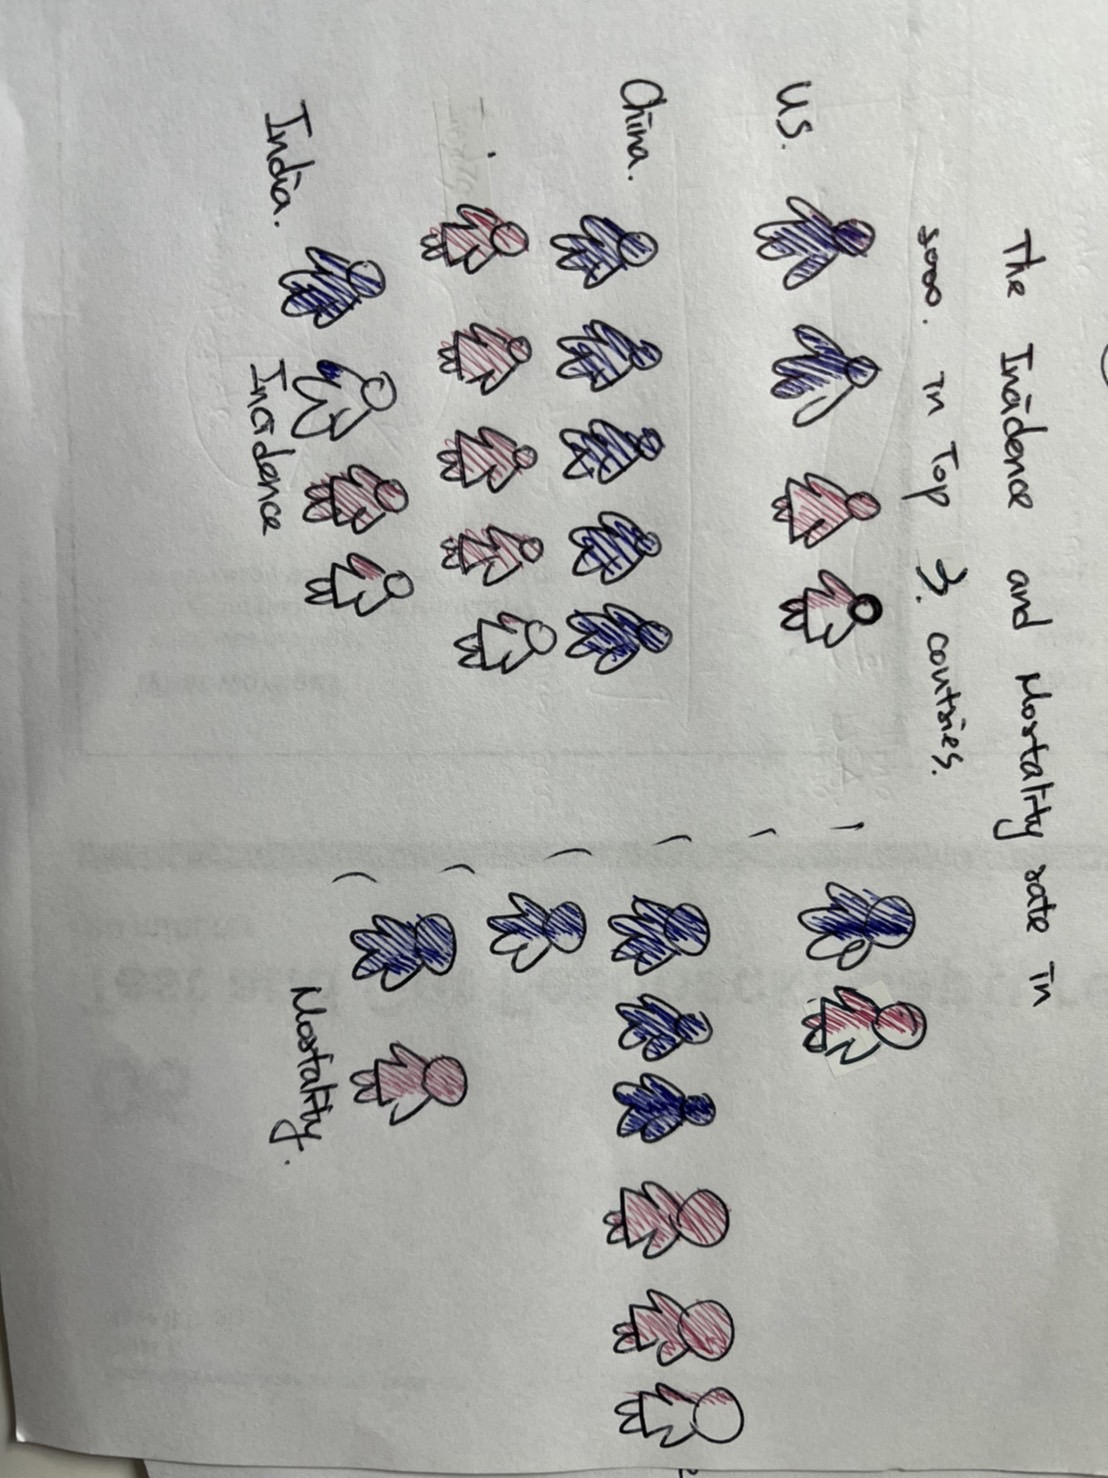 The Incidence and Mortality rate in
2020. in Top 3. coutries.
US.
China.
India.
Incidence
Mortality.